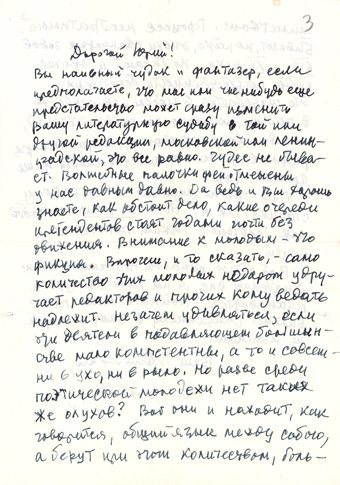 3
Дорогой Юрий!
Вы наивный чудак и фантазер, если
предполагаете, что мое или чье нибудь еще
предстательство может сразу изменить
Вашу литературную судьбу в той или
другой редакции, московской или ленин-
градской, это все равно. Чудес не быва-
ет. Волшебные палочки феи отменены
у нас давным давно. Да ведь и Вы хорошо
знаете, как обстоит дело, какие очереди
претендентов стоят годами почти без
движения. Внимание к молодым – это
фикция. Впрочем, и то сказать, – само
количество этих молодых и одарен удру-
чает редакторов и прочих кому ведать
надлежит. Незачем удивляться, если
эти деятели в подавляющем большин-
стве мало компетентны, а то и совсем –
ни в ухо, ни в рыло. Но разве среди
поэтической молодежи нет таких
же олухов? Вот они и находят, как
говорится, общий язык между собою,
а берут при этом количеством, боль-